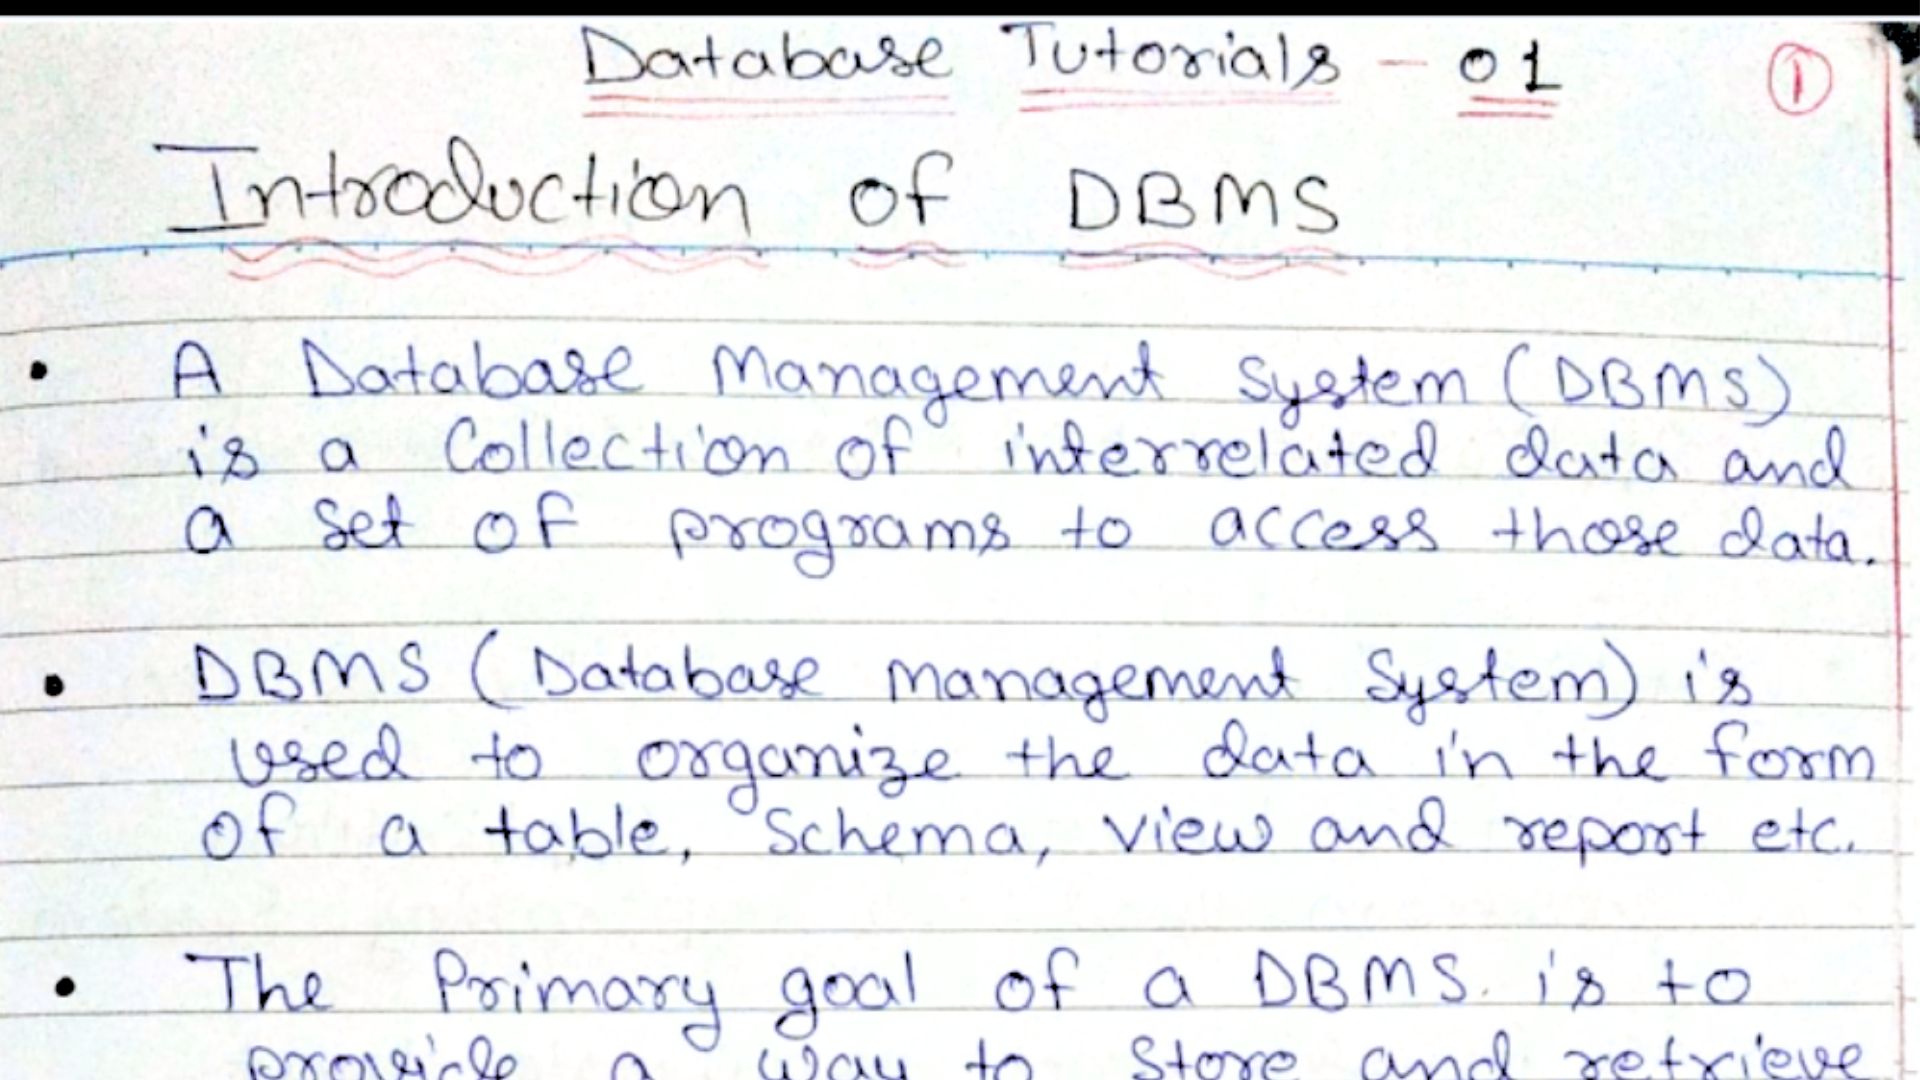 Database Tutorials - 01
1
Introduction of DBMS
• A Database Management System (DBMS)
is a Collection of interrelated data and
a set of programs to access those data.
• DBMS (Database Management System) is
used to organize the data in the form
of a table, Schema, view and report etc.
• The Primary goal of a DBMS. is to
provide a way to store and retrieve